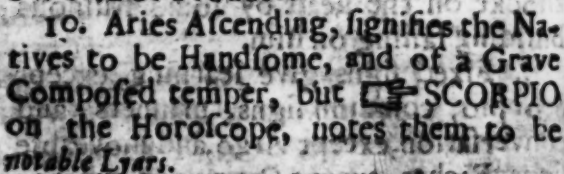 10. Aries Aſcending, ſignifies the Na-
tives to be Handſome, and of a Grave
Compoſed temper, but ☞ SCORPIO
on the Horoſcope, notes them to be
notable Lyars.